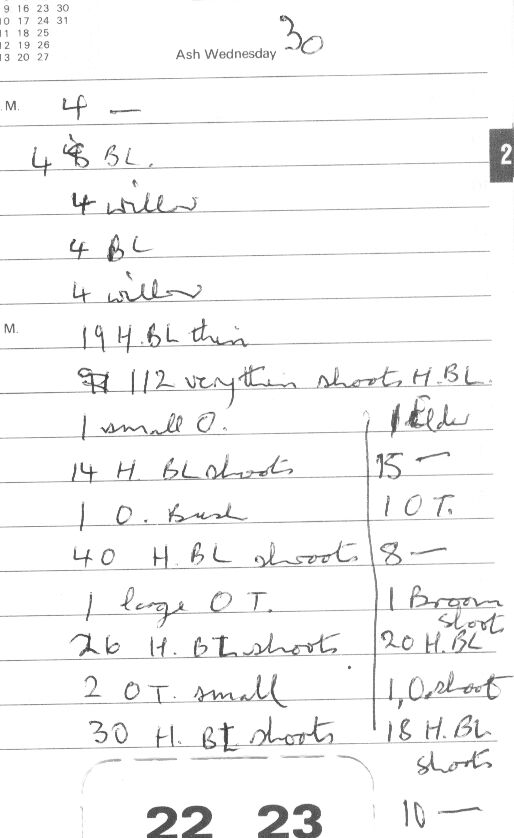 9 16 23 30
10 17 24 31
11 18 25
12 19 26
13 20 27
Ash Wednesday 30
.M. 4 —
4 BL.
2
4 willow
4 BL
4 willow
M. 19 H.BL thin
112 very thin shoots H.BL.
1 small O.
14 H BL shoots
1 O. Bush
40 H. BL shroots
1 large O T.
26 H. BL shoots
2 OT. small
30 H. BL shoots
1 Elder
15 —
1 O T.
8 —
1 Broom
shoot
20 H. BL
1, O. shoot
18 H. BL
shoots
10 —
22 23